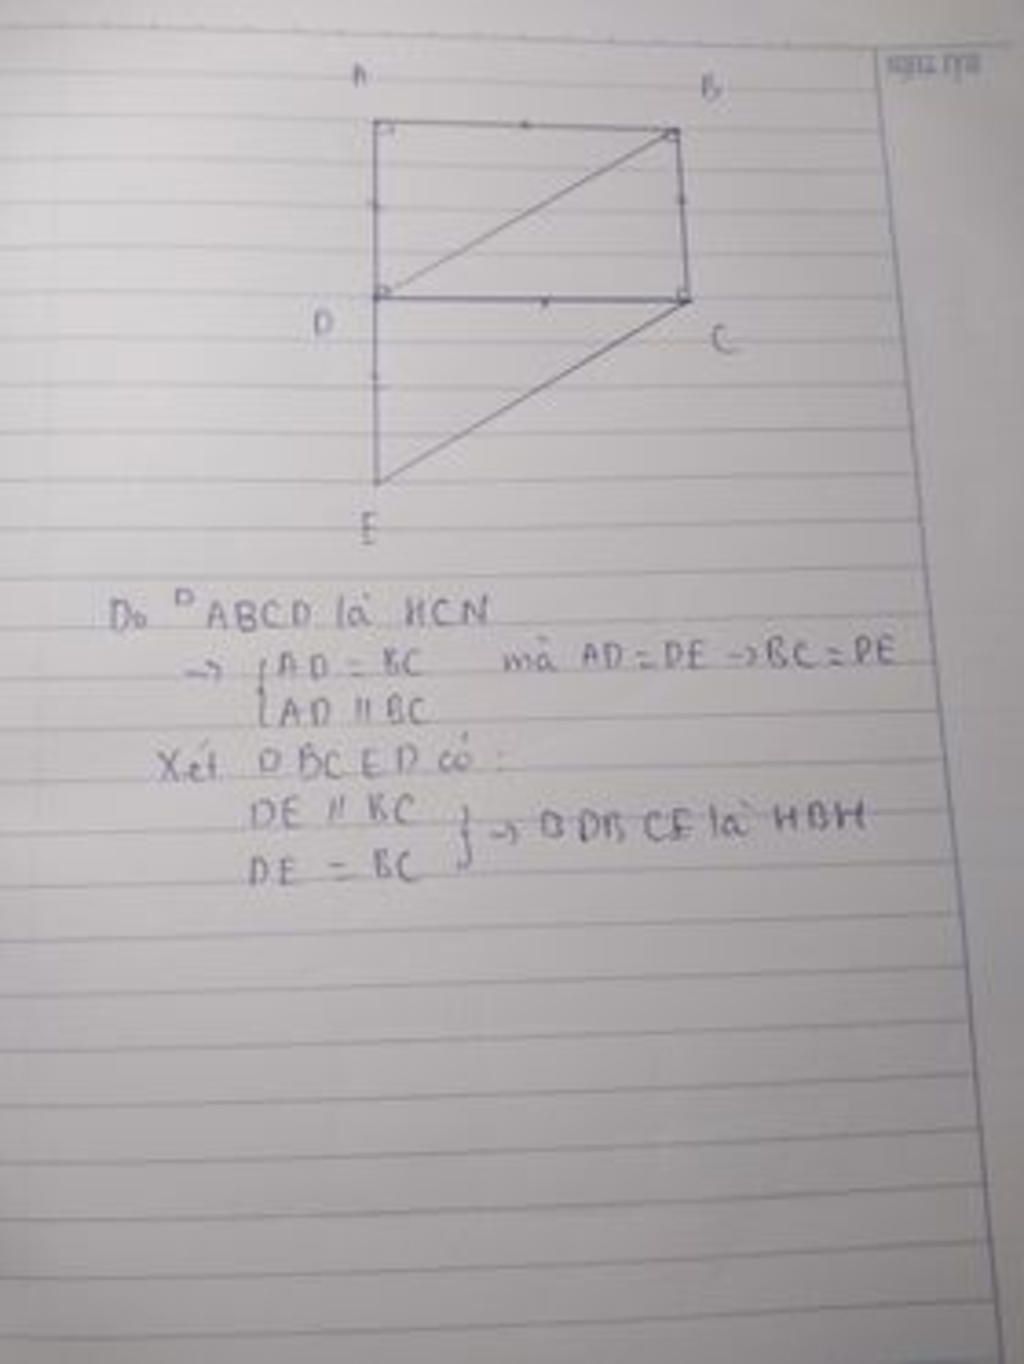 A
B
D
C
E
Do □ ABCD là HCN
→ { AD = BC mà AD = DE → BC = DE
AD // BC
Xét □ BCED có :
DE // BC
DE = BC } → □ DBCE là HBH